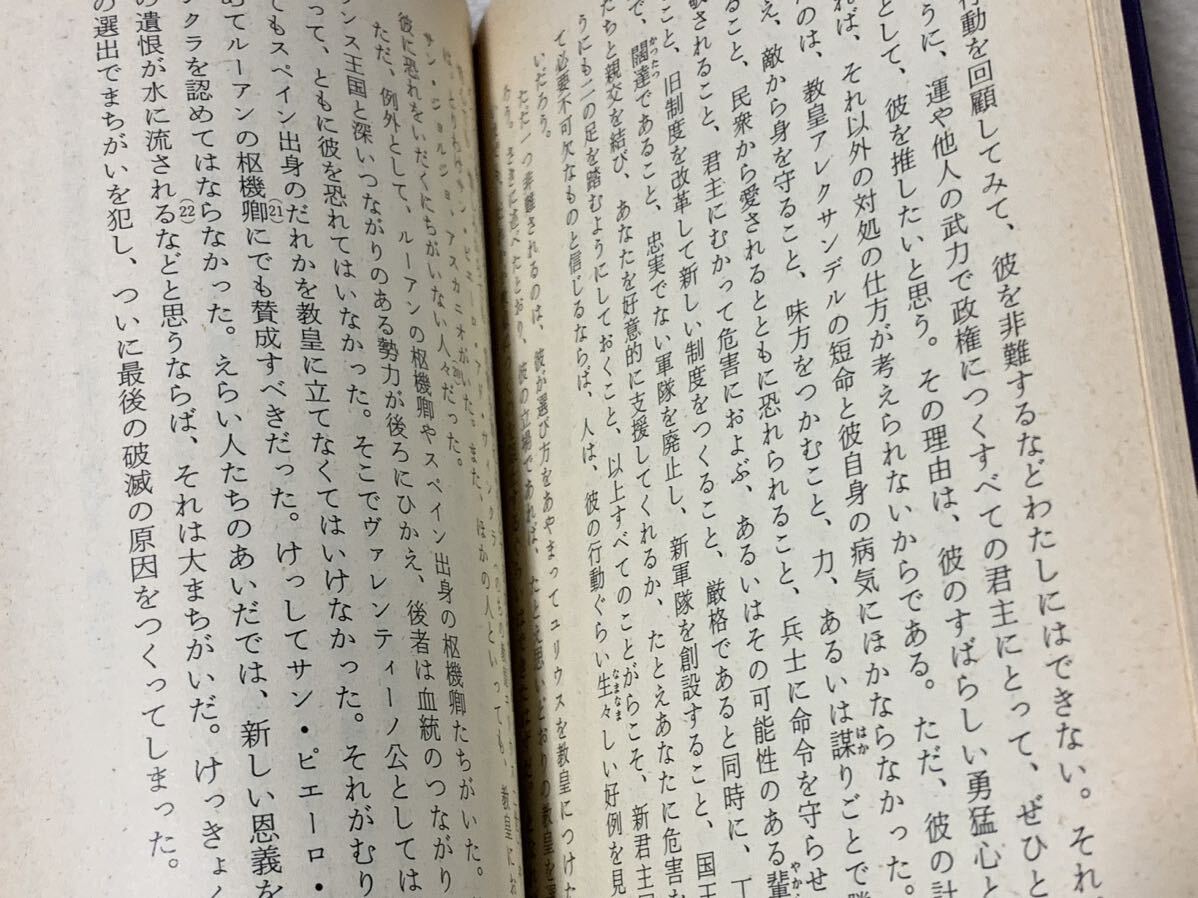 行動を回顧してみて、彼を非難するなどわたしにはできない。それ
うに、運や他人の武力で政権につくすべての君主にとって、ぜひと
として、彼を推したいと思う。その理由は、彼のすばらしい勇猛心と
れば、それ以外の対処の仕方が考えられないからである。ただ、彼の計
のは、教皇アレクサンデルの短命と彼自身の病気にほかならなかった。
え、敵から身を守ること、味方をつかむこと、力、あるいは謀りごとで
はか
ること、民衆から愛されるとともに恐れられること、兵士に命令を守らせ
敬されること、君主にむかって危害におよぶ、あるいはその可能性のある輩
やか
こと、旧制度を改革して新しい制度をつくること、厳格であると同時に、丁
で、闊達であること、忠実でない軍隊を廃止し、新軍隊を創設すること、国王
かったつ
たちと親交を結び、あなたを好意的に支援してくれるか、たとえあなたに危害を
うにも二の足を踏むようにしておくこと、以上すべてのことがらこそ、新君主
て必要不可欠なものと信じるならば、人は、彼の行動ぐらい生々しい好例を見
なまなま
いだろう。
ただ一つ非難されるのは、彼が選び方をあやまってユリウスを教皇につけた
あろう。さきに述べたとおり、彼の立場であれば、たとえ思いどおりの教皇を
サン・ジョルジョ、アスカニオがいた。また、ほかの人といっても、教皇にな
(20)
彼に恐れをいだくにちがいない人々だった。
ただ、例外として、ルーアンの枢機卿やスペイン出身の枢機卿たちがいた。
ンス王国と深いつながりのある勢力が後ろにひかえ、後者は血統のつながり
って、ともに彼を恐れてはいなかった。そこでヴァレンティーノ公としては
てもスペイン出身のだれかを教皇に立てなくてはいけなかった。それがむり
めてルーアンの枢機卿にでも賛成すべきだった。けっしてサン・ピエーロ・
(21)
クラを認めてはならなかった。えらい人たちのあいだでは、新しい恩義を
の遺恨が水に流されるなどと思うならば、それは大まちがいだ。けっきょく
(22)
の選出でまちがいを犯し、ついに最後の破滅の原因をつくってしまった。